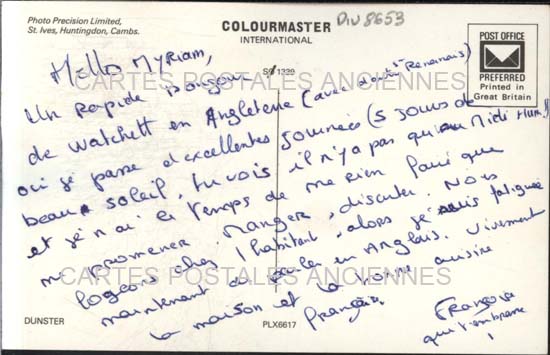 Photo Precision Limited,
St. Ives, Huntingdon, Cambs.
COLOURMASTER
INTERNATIONAL
Div 8653
POST OFFICE
PREFERRED
Printed in
Great Britain
CARTES POSTALES ANCIENNES
Hello Myriam,
Un rapide bonjour
de Watchett en Angleterre (avec
où je passe d'excellentes journées (5 jours de
beau soleil, tu vois il n'y a pas qu'au Midi
et je n'ai le temps de ne rien faire que
me promener, manger, discuter. Nous
logeons chez l'habitant, alors je suis fatiguée
maintenant de parler en Anglais. Vivement
la maison et la bonne cuisine
française.
Françoise
qui t'embrasse
CARTES POSTALES ANCIENNES
DUNSTER
PLX6617